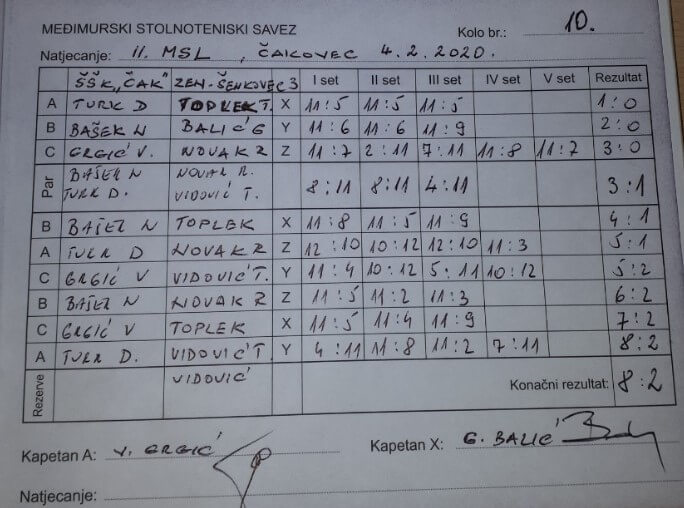 MEĐIMURSKI STOLNOTENISKI SAVEZ Kolo br.: 10.
Natjecanje: II. MSL, ČAKOVEC 4.2.2020.
ŠŠK "ČAK" ZEN-ŠENKOVEC 3 I set II set III set IV set V set Rezultat
A TURK D TOPLEK T. X 11:5 11:5 11:5 1:0
B BAŠEK N BALIĆ G Y 11:6 11:6 11:9 2:0
C GRGIĆ V. NOVAK R Z 11:7 2:11 7:11 11:8 11:7 3:0
Par BAŠEK N TURK D. NOVAK R. VIDOVIĆ T. 8:11 8:11 4:11 3:1
B BAŠEK N TOPLEK X 11:8 11:5 11:9 4:1
A TURK D NOVAK R Z 12:10 10:12 12:10 11:3 5:1
C GRGIĆ V VIDOVIĆ T. Y 11:4 10:12 5:11 10:12 5:2
B BAŠEK N NOVAK R Z 11:5 11:2 11:3 6:2
C GRGIĆ V TOPLEK X 11:5 11:4 11:9 7:2
A TURK D. VIDOVIĆ T Y 4:11 11:8 11:2 7:11 8:2
Rezerve VIDOVIĆ Konačni rezultat: 8:2
Kapetan A: V. GRGIĆ Kapetan X: G. BALIĆ
Natjecanje: